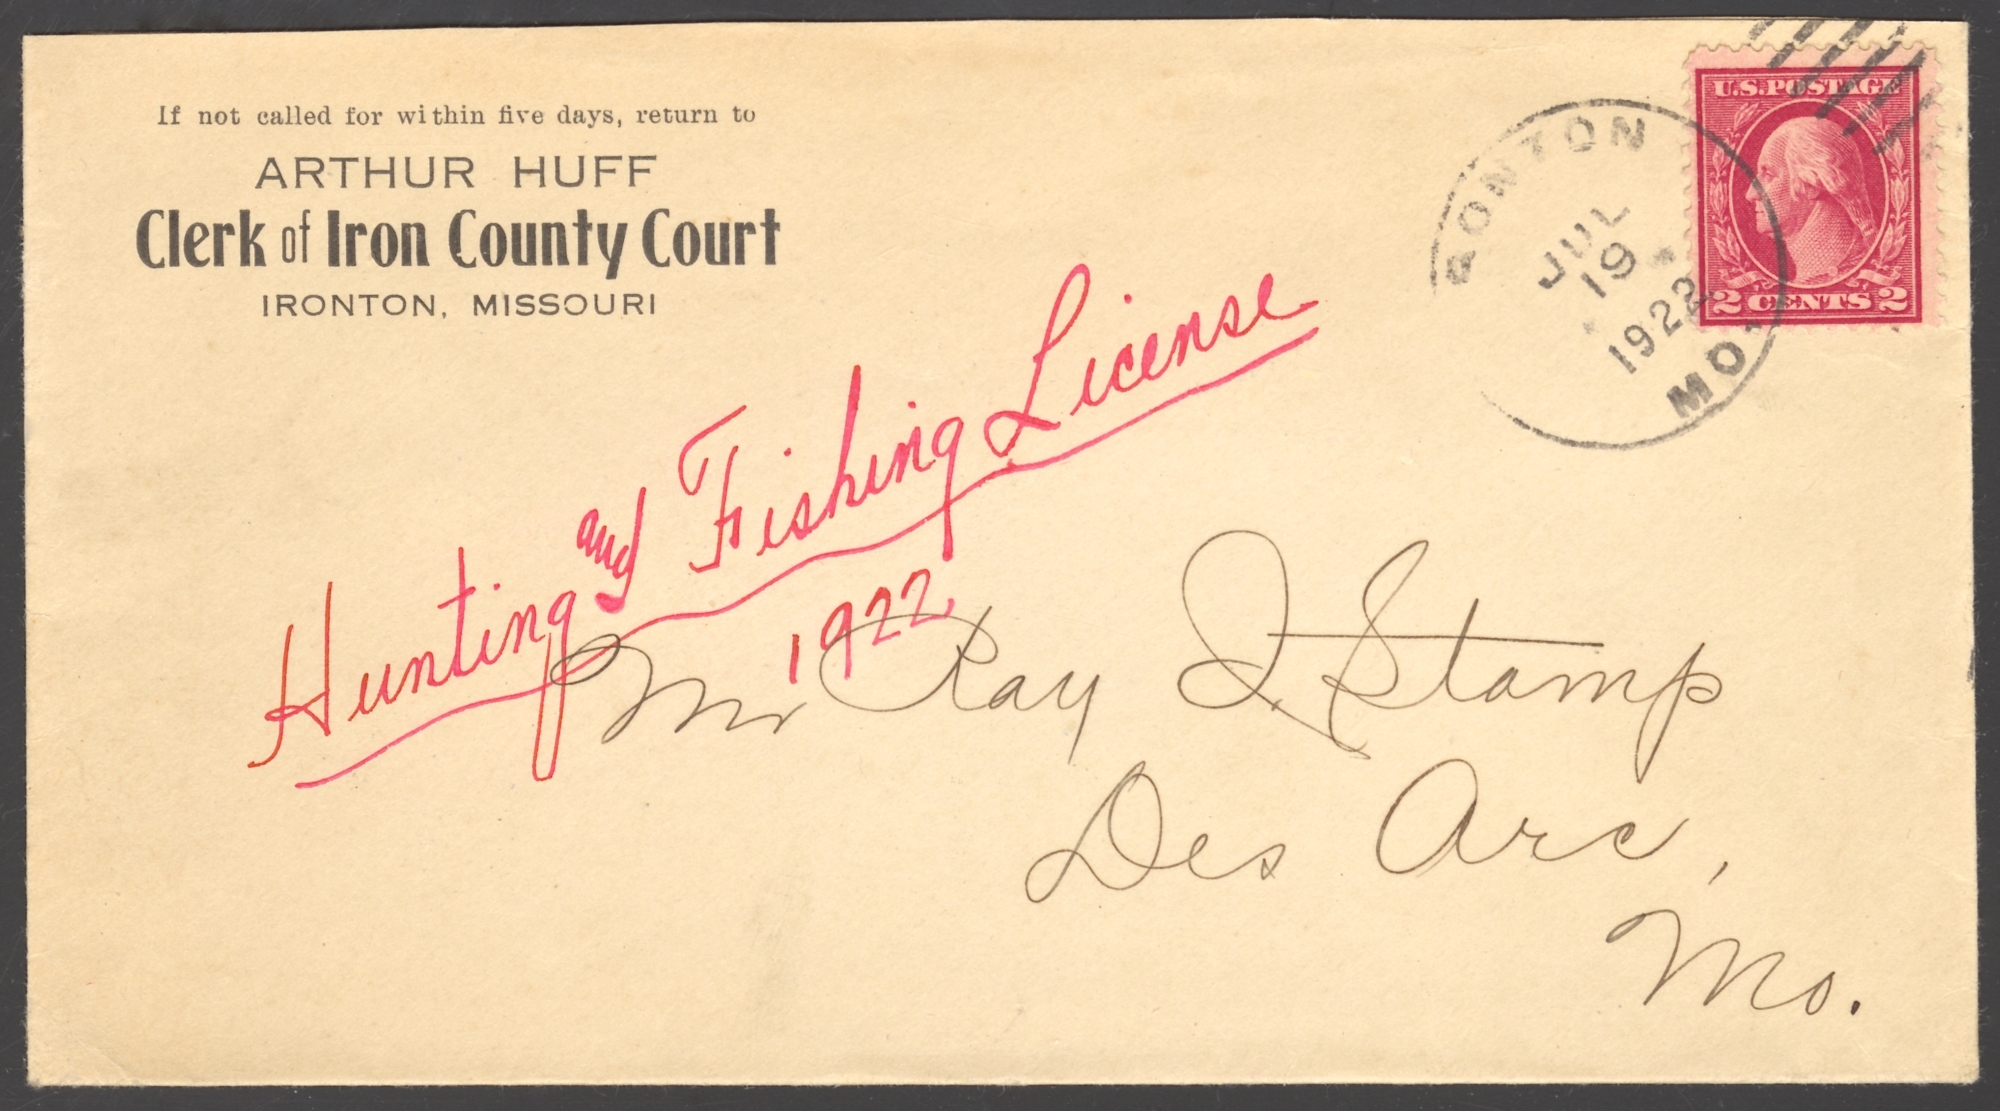 If not called for within five days, return to
ARTHUR HUFF
Clerk of Iron County Court
IRONTON, MISSOURI
U.S. POSTAGE
2 CENTS 2
RONTON
JUL
19
1922
MO.
Hunting and Fishing License
1922
Mr Ray I. Stamp
Des Arc,
Mo.